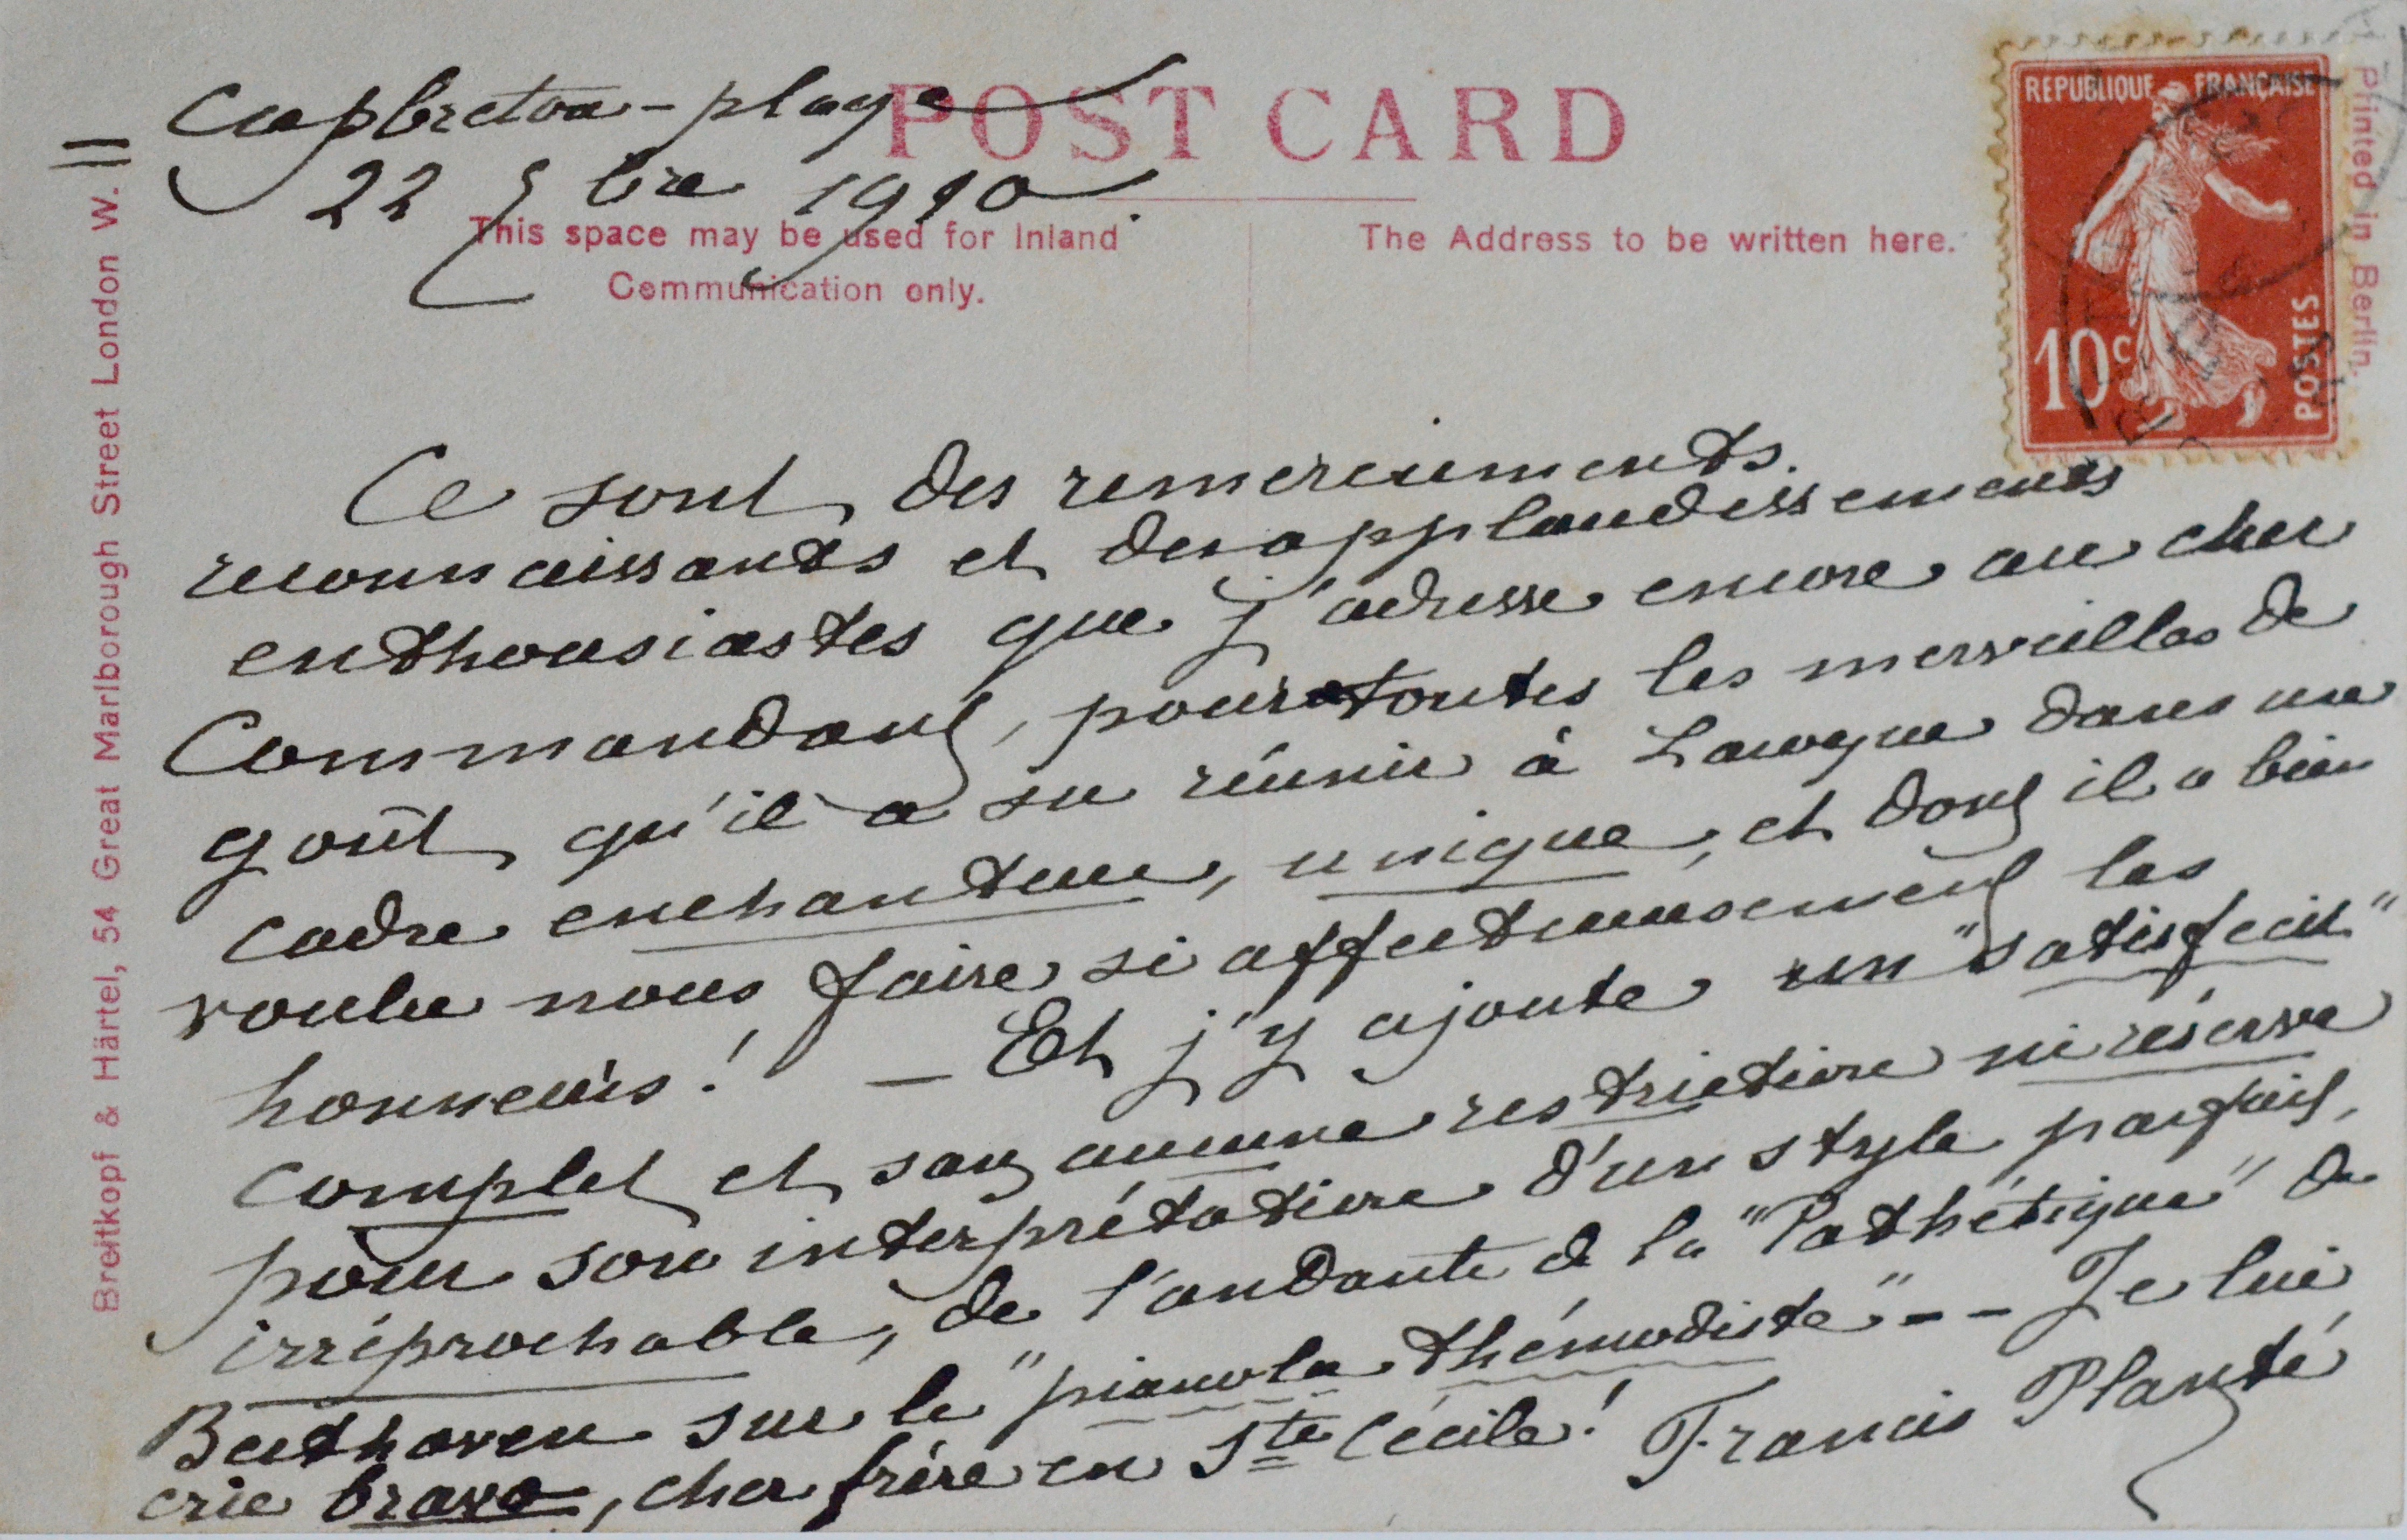 Capbreton-plage
22 9bre 1910.
POST CARD
This space may be used for Inland
Communication only.
The Address to be written here.
REPUBLIQUE FRANÇAISE
10c
POSTES
Printed in Berlin.
Breitkopf & Härtel, 54 Great Marlborough Street London W.
Ce sont des remerciements
reconnaissants et des applaudissements
enthousiastes que j'adresse encore au cher
Commandant, pour toutes les merveilles de
goût qu'il a su réunir à dans un
cadre enchanteur, unique, et dont il a bien
voulu nous faire si affectueusement les
honneurs! — Et j'y ajoute un "satisfecit"
complet et sans aucune restriction ni réserve
pour son interprétation d'un style parfait,
irréprochable, de l'andante de la "Pathétique" de
Beethoven sur le "pianola thémodiste" -- Je lui
crie bravo, cher frère en Ste Cécile! Francis Planté